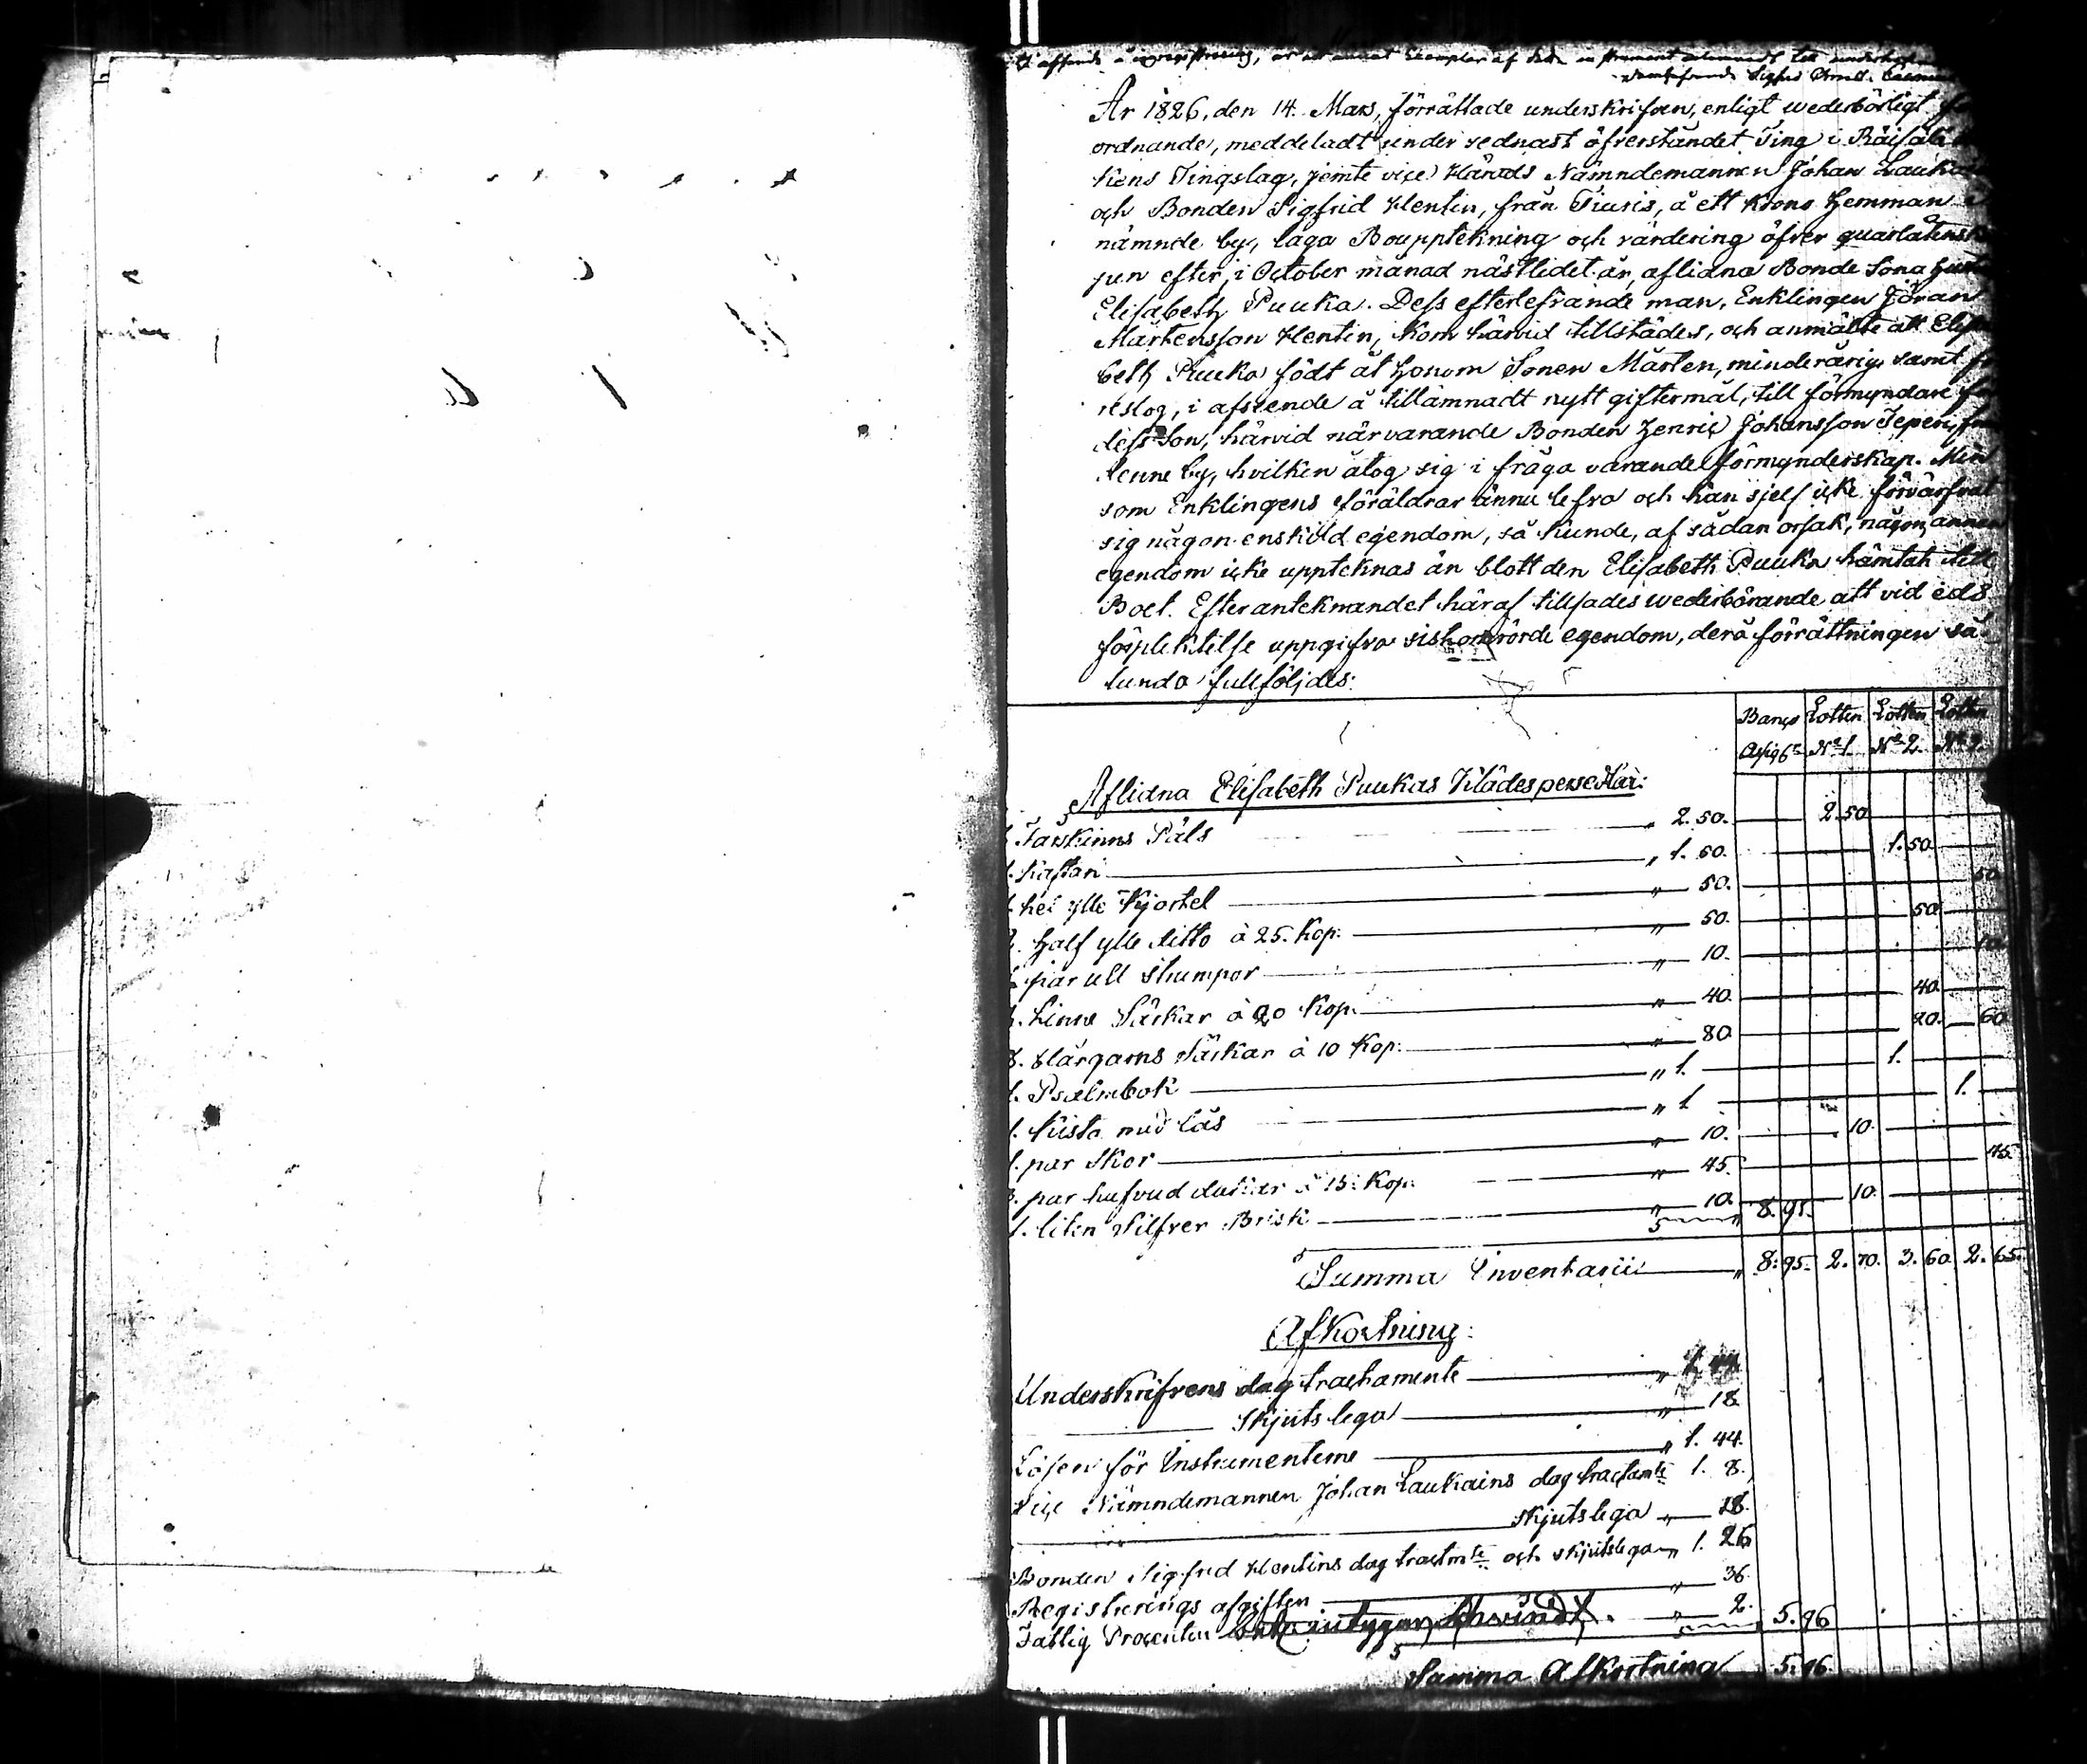 År 1826, den 14. Mars, förrättade underskrifven, enligt wederbörligt
ordnande, meddeladt under sednast öfverståndet Ting i Räisälä
kens Tingslag, jemte vice Härads Nämndemannen Johan
och Bonden Sigfrid Hentin, från Tiuris, å ett Krono Hemman
nämnde by, laga Bouppteknning och värdering öfver quarlåtenska
pen efter, i October månad nästlidet år, aflidna Bonde Sona
Elisabeth Puuka. Dess efterlefvande man, Enklingen Jöran
Mårtensson Hentin, kom härvid tillstädes, och anmälte att Elisa
beth Puuka födt åt honom Sonen Mårten, minderårig, samt
reslog, i afseende å tillämnadt nytt giftermål, till förmyndare
dess Son, härvid närvarande Bonden Henric Johansson Teperi,
denne by, hvilken åtog sig i fråga varande förmynderskap. Men
som Enklingens föräldrar ännu lefva och han sjelf icke förvärfvat
sig någon enskild egendom, så kunde, af sådan orsak, någon annan
egendom icke uppteknas än blott den Elisabeth Puuka hämtat till
Boet. Efter anteknandet häraf tillsades wederbörande att vid eds
förplektelse uppgifva sistomrörde egendom, derå förrättningen så
lunda fullföljdes:
Banco Lotten Lotten Lotten
Assigr No 1. No 2. No 3.
Aflidna Elisabeth Puukas Klädespersedlar:
Fårskinns Päls " 2. 50. 2. 50
1. Kaftan " 1. 50. 1. 50.
1. hel ylle Kjortel " 50. 50
2. Half ylle ditto à 25. Kop: " 50. 50
par ull strumpor " 10. 10
2. Linne Särkar à 20 Kop: " 40. 40
8. Blårgarns Särkar à 10 Kop: " 80 20. 60
1. Psalmbok " 1. 1.
1. Kista med lås " 1 1.
1. par Skor " 10. 10.
3. par hufvud dukar à 15. Kop: " 45. 45.
1. liten Silfver Brisk " 10. 8. 95. 10.
Summa Inventarii " 8. 95. 2. 70. 3. 60. 2. 65.
Afkortning:
Underskrifvens dag tractamente " 1. 44.
Skjutslega " 18.
Lösen för Instrumenterne " 1. 44.
Vice Nämndemannen Johan Laukains dag tractamte 1. 8.
Skjutslega " 18.
Bonden Sigfrid Hentins dag tractmte och skjutslega " 1. 26
Registrerings afgiften " 36.
Fattig Procenten " 2. 5. 96
Summa Afkortning 5. 96